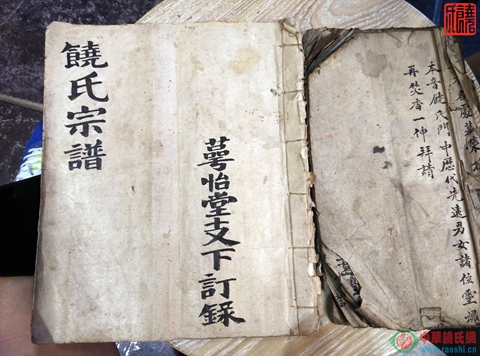 饒氏宗譜
萼怡堂支下訂錄
本音饒氏門中歷代先遠男女諸位靈魂
再焚香一抻拜請
中華饒氏網
www.raoshi.cn